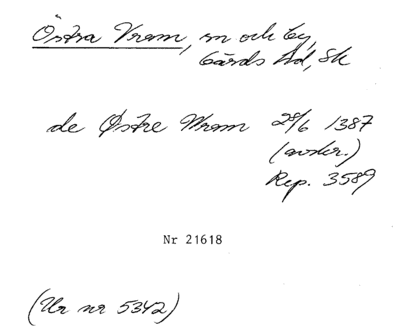 Östra Vram, sn och by,
Gärds hd, Sk
de Østre Wram 28/6 1387
(avskr.)
Rep. 3589
Nr 21618
(Ur nr 5342)